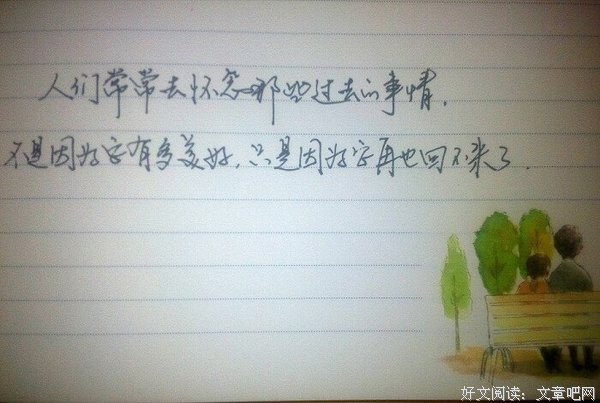 人们常常去怀念那些过去的事情.
不是因为它有多美好,只是因为它再也回不来了.
好文阅读：文章吧网